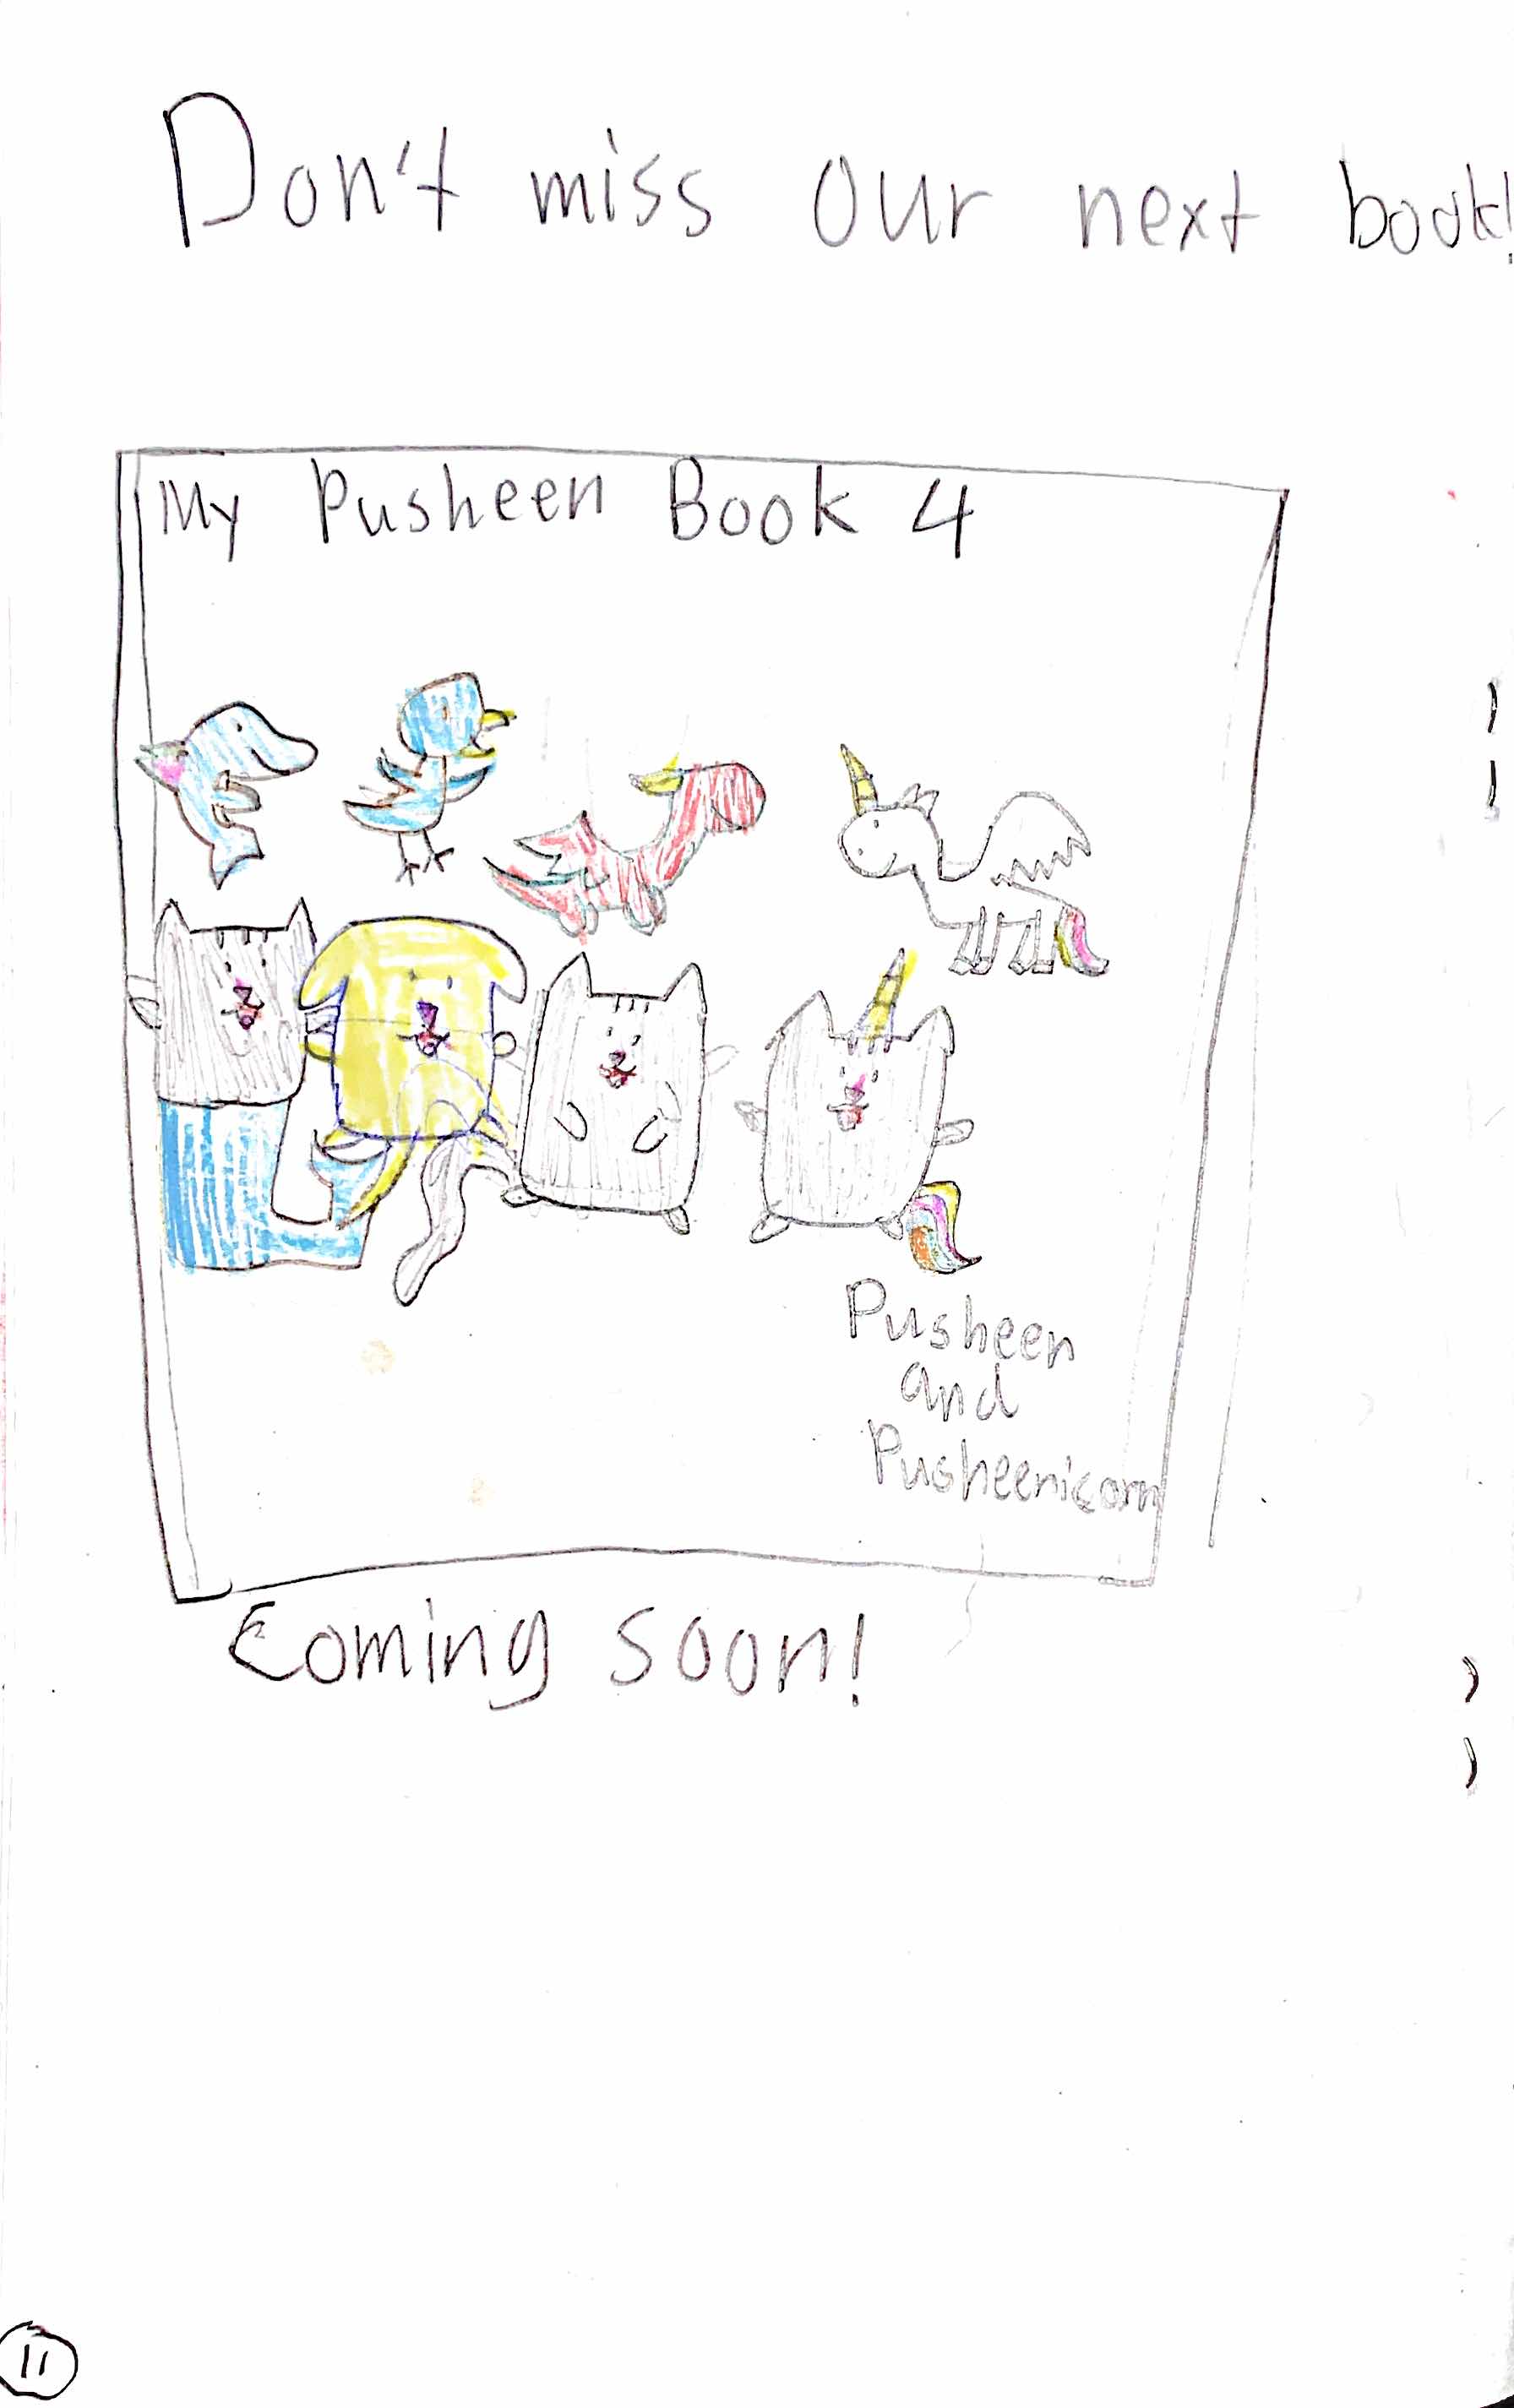 Don't miss our next book!
My Pusheen Book 4
Pusheen
and
Pusheenicorn
Coming soon!
11